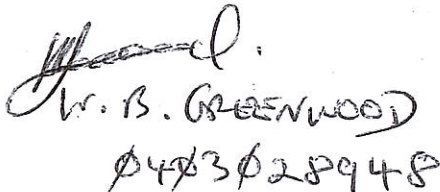 W. B. GREENWOOD
0403028948